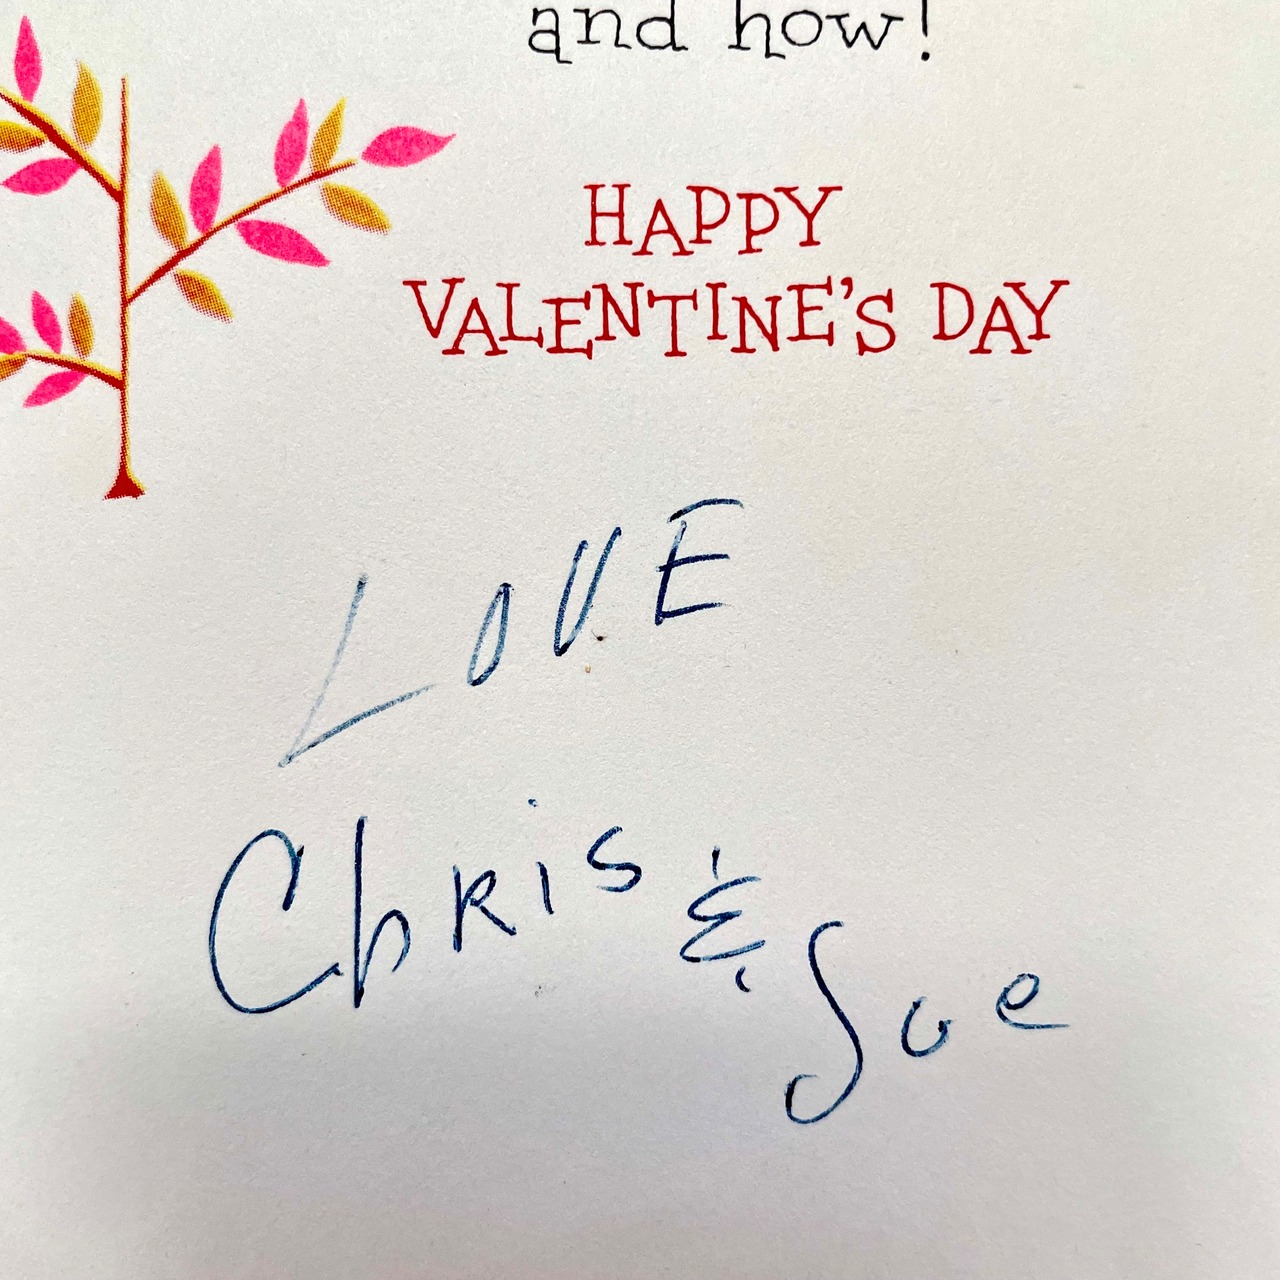 and how!
HAPPY
VALENTINE'S DAY
LOVE
Chris & Sue